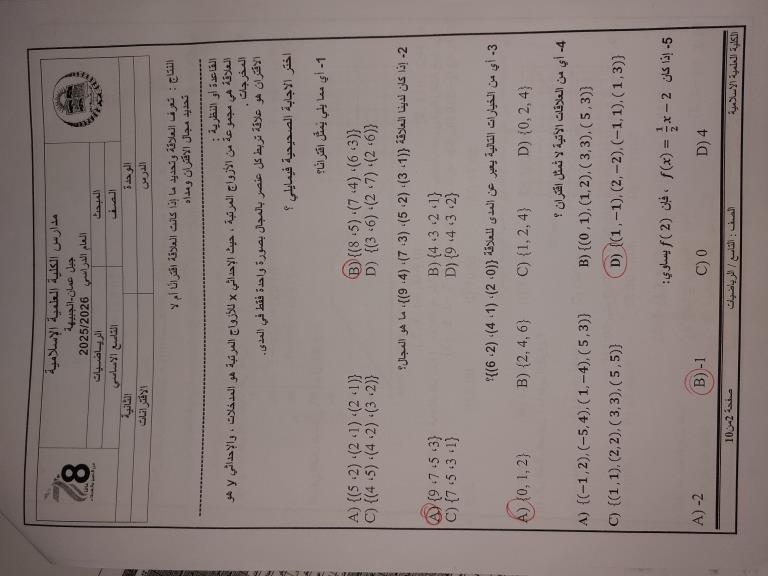 مدارس الكلية العلمية الإسلامية
جبل عمان-الجبيهة
العام الدراسي 2025/2026
المبحث الرياضيات
الصف التاسع الاساسي
الوحدة الثانية
الدرس الاقترانات
النتاج : تعرف العلاقة وتحديد ما إذا كانت العلاقة اقترانًا أم لا
تحديد مجال الاقتران ومداه
القاعدة أو النظرية :
العلاقة هي مجموعة من الأزواج المرتبة ، حيث الإحداثي x للأزواج المرتبة هو المدخلات ، والإحداثي y هو
المخرجات .
الاقتران هو علاقة تربط كل عنصر بالمجال بصورة واحدة فقط في المدى.
اختر الاجابة الصحيحة فيمايلي ؟
1- أي مما يلي يمثل اقترانًا؟
A) {(5 ،2) ،(2 ،1) ،(2 ،1)} B) {(8 ،5) ،(7 ،4) ،(6 ،3)}
C) {(4 ،5) ،(4 ،2) ،(3 ،2)} D) {(3 ،6) ،(2 ،7) ،(2 ،6)}
2- إذا كان لدينا العلاقة {(1، 3)، (2، 5)، (3، 7)، (4، 9)}، ما هو المجال؟
A) {9 ،7 ،5 ،3} B) {4 ،3 ،2 ،1}
C) {7 ،5 ،3 ،1} D) {9 ،4 ،3 ،2}
3- أي من الخيارات التالية يعبر عن المدى للعلاقة {(0، 2)، (1، 4)، (2، 6)}؟
A) {0, 1, 2} B) {2, 4, 6} C) {1, 2, 4} D) {0, 2, 4}
4- أي من العلاقات الآتية لا تمثل اقتران ؟
A) {(−1, 2), (−5, 4), (1, −4), (5, 3)} B) {(0, 1), (1, 2), (3, 3), (5, 3)}
C) {(1, 1), (2, 2), (3, 3), (5, 5)} D) {(1, −1), (2, −2), (−1, 1), (1, 3)}
5- إذا كان f(x) = 1/2 x − 2 ، فإن f(2) يساوي:
A) -2 B) -1 C) 0 D) 4
الكلية العلمية الاسلامية الصف : التاسع / الرياضيات صفحة 2من10